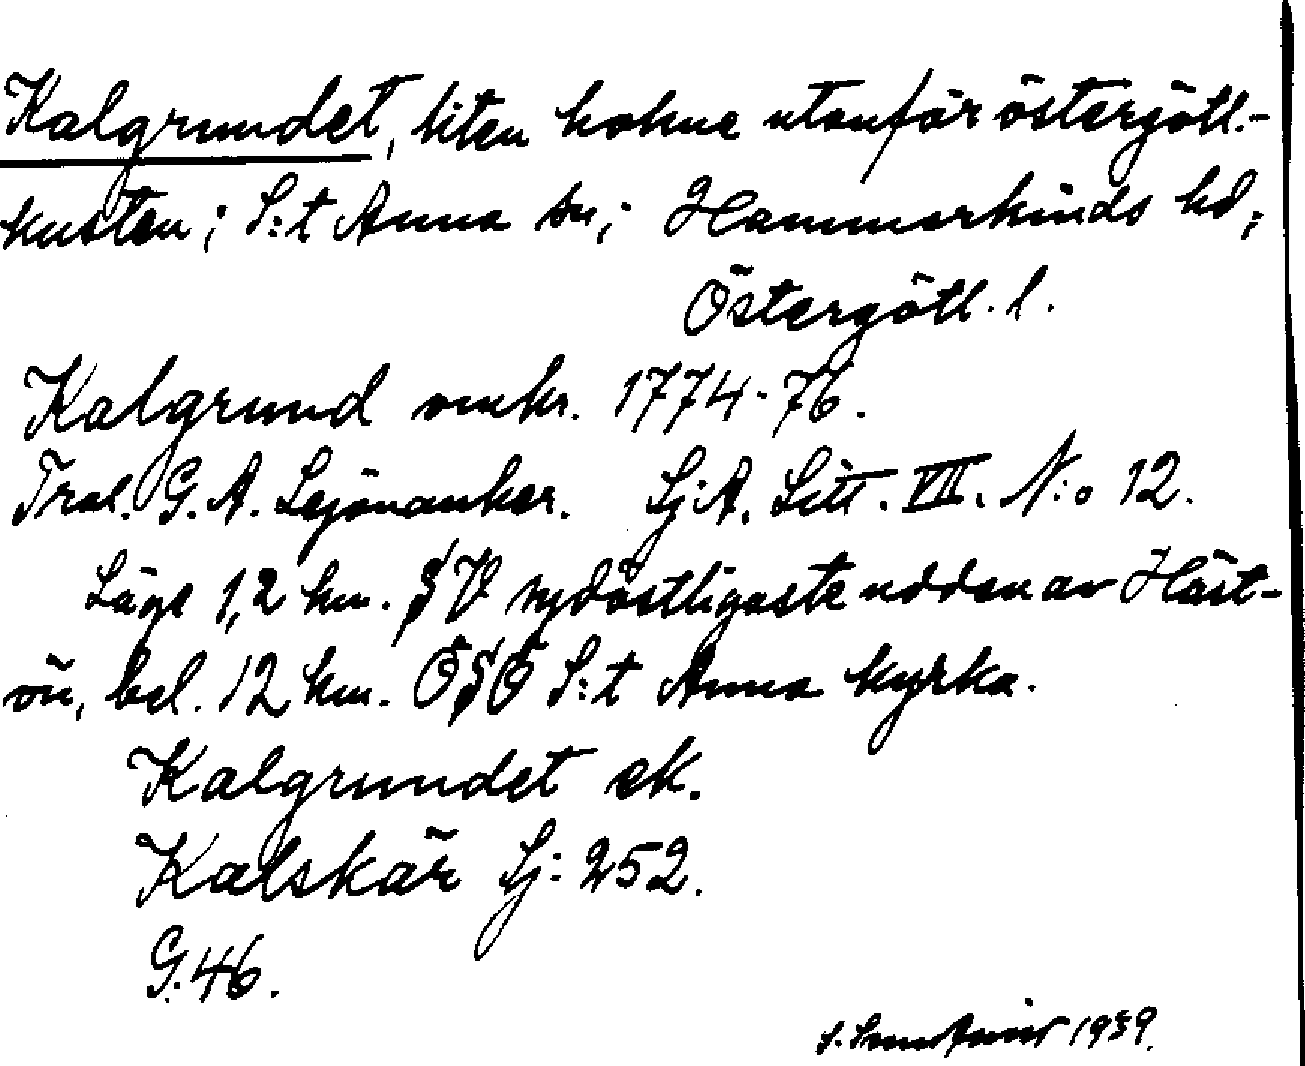 Kalgrundet, liten holme utanför östergötl.-
kusten; S:t Anna sn; Hammarkinds hd;
Östergötl. l.
Kalgrund omkr. 1774-76.
Trol. G. A. Lejonanker. Sj:A. Litt. VII. N:o 12.
Läge 1,2 km. SV sydöstligaste udden av Häst-
ön, bel. 12 km. OSO S:t Anna kyrka.
Kalgrundet ek.
Kalskär Sj: 252.
G.46.
S. 1939.